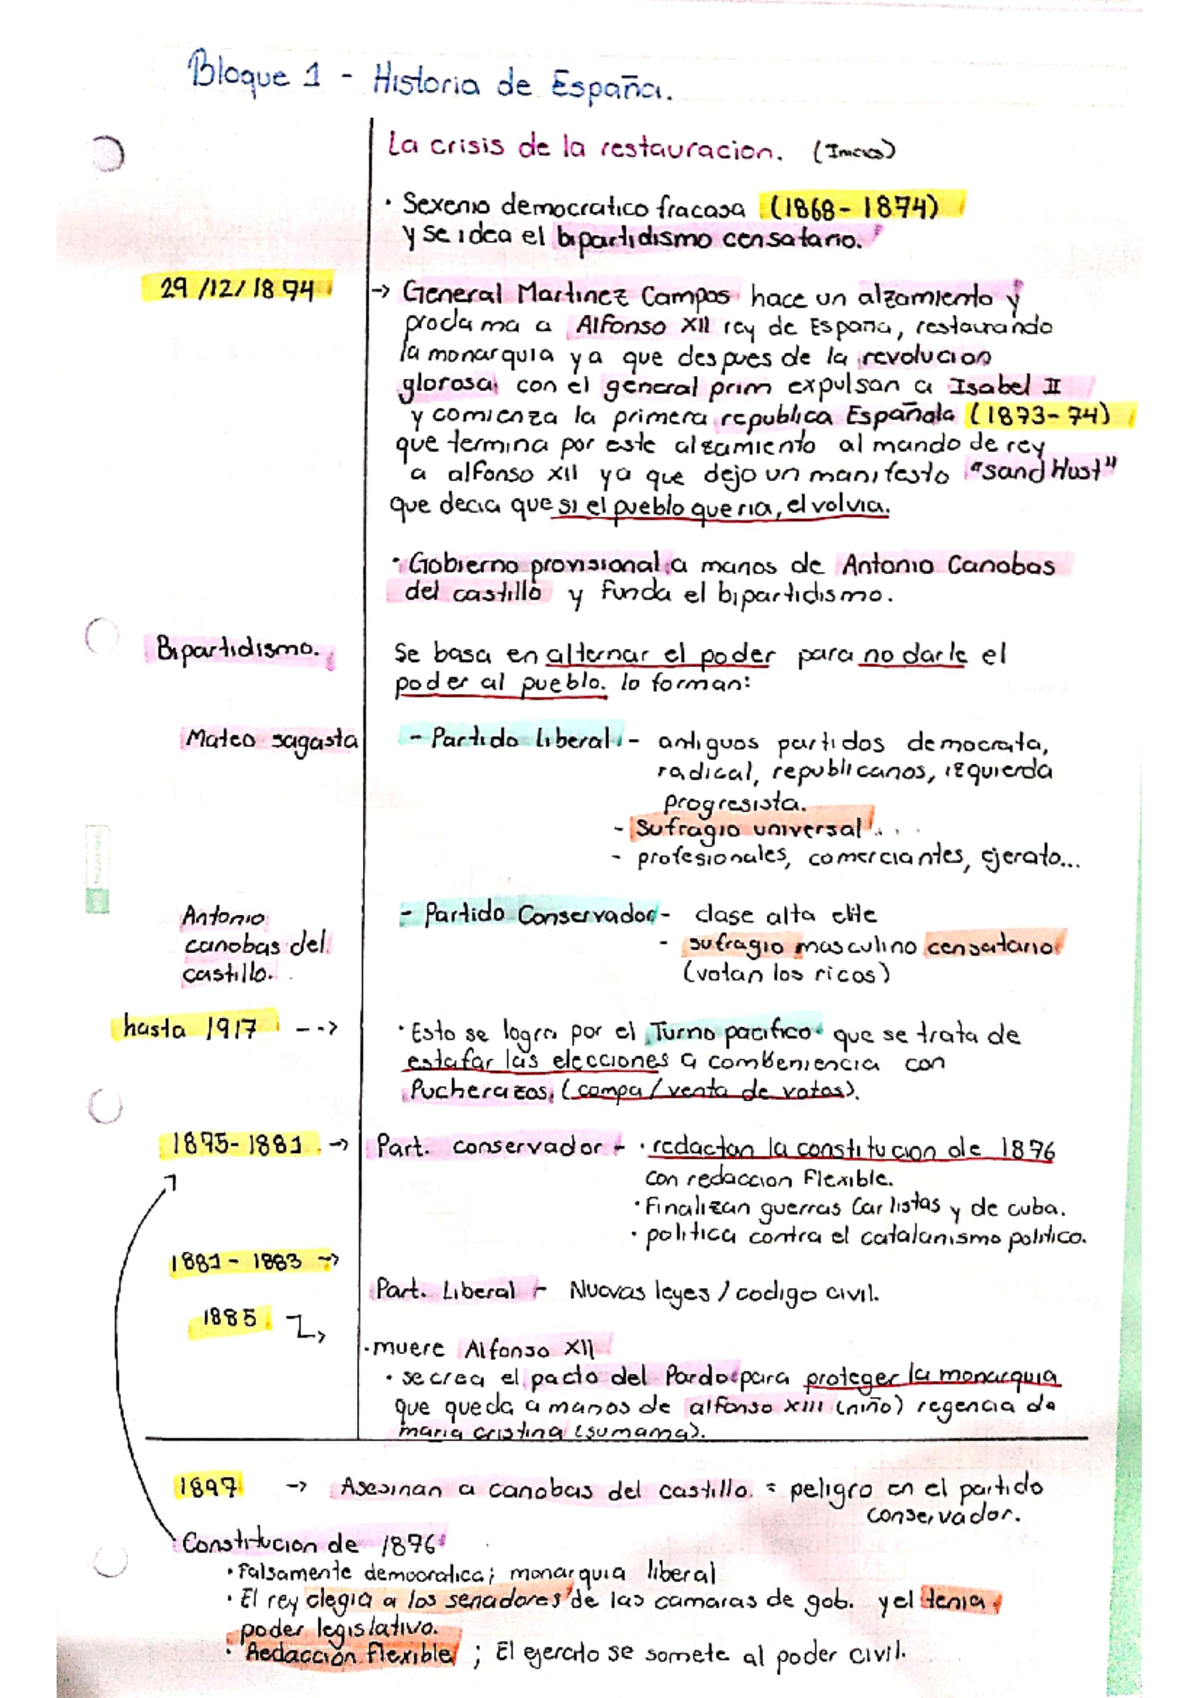 Bloque 1 - Historia de España.
La crisis de la restauracion. (Inicios)
· Sexenio democratico fracasa (1868-1874)
y se idea el bipartidismo censatario.
29/12/1874 → General Martinez Campos hace un alzamiento y
proclama a Alfonso XII rey de España, restaurando
la monarquia ya que despues de la revolucion
glorosa, con el general prim expulsan a Isabel II
y comienza la primera republica Española (1873-74)
que termina por este alzamiento al mando de rey
a alfonso XII ya que dejo un manifesto "sand Hust"
que decia que si el pueblo queria, el volvia.
· Gobierno provisional a manos de Antonio Canobas
del castillo y funda el bipartidismo.
Bipartidismo. Se basa en alternar el poder para no darle el
poder al pueblo. lo forman:
Mateo sagasta - Partido liberal - antiguos partidos democrata,
radical, republicanos, izquierda
progresista.
- Sufragio universal...
- profesionales, comerciantes, ejerato...
Antonio
canobas del
castillo.
- Partido Conservador - clase alta elite
- sufragio masculino censatario
(votan los ricos)
hasta 1917 --> · Esto se logra por el Turno pacifico que se trata de
estafar las elecciones a combeniencia con
Pucherazos, (compa/venta de votos).
1875-1881 → Part. conservador - · redactan la constitucion de 1876
con redaccion Flexible.
· Finalizan guerras Carlistas y de cuba.
· politica contra el catalanismo politico.
1881-1883 →
Part. Liberal - Nuevas leyes / codigo civil.
1885
· muere Alfonso XII
· se crea el pacto del Pardo para proteger la monarquia
que queda a manos de alfonso XIII (niño) regencia de
maria cristina (sumama).
1897 → Asesinan a canobas del castillo. = peligro en el partido
conservador.
Constitucion de 1876
· Falsamente democratica; monarquia liberal
· El rey elegia a los senadores de las camaras de gob. y el tenia
poder legislativo.
· Redacción flexible ; El ejercito se somete al poder civil.